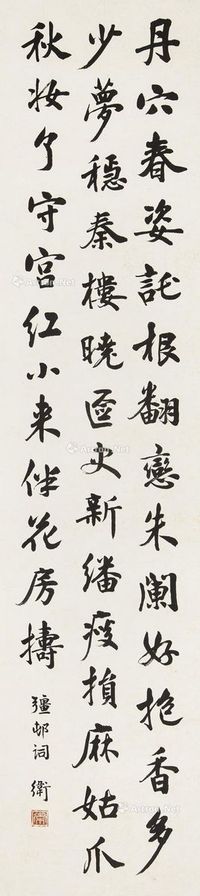 丹穴春姿託根翻戀朱闌好抱香多
少夢穩秦樓曉匳史新繙瘦損麻姑爪
秋妝乍守宮紅小來伴花房擣
彊邨詞 衡